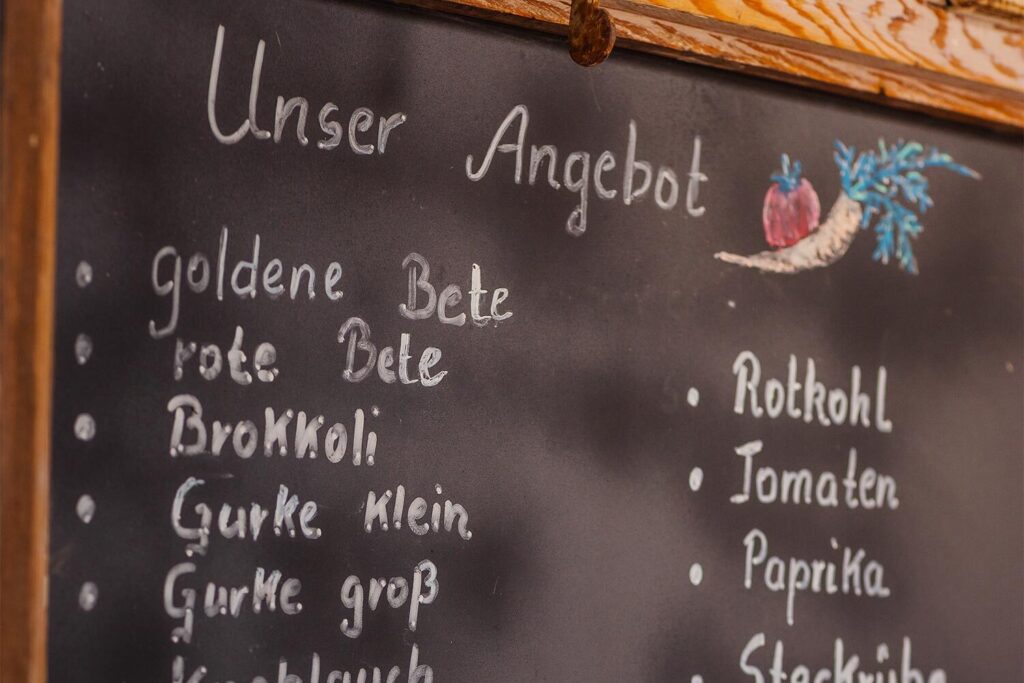 Unser Angebot
• goldene Bete
• rote Bete
• Brokkoli
• Gurke klein
• Gurke groß
Knoblauch
• Rotkohl
• Tomaten
• Paprika
• Steckrübe